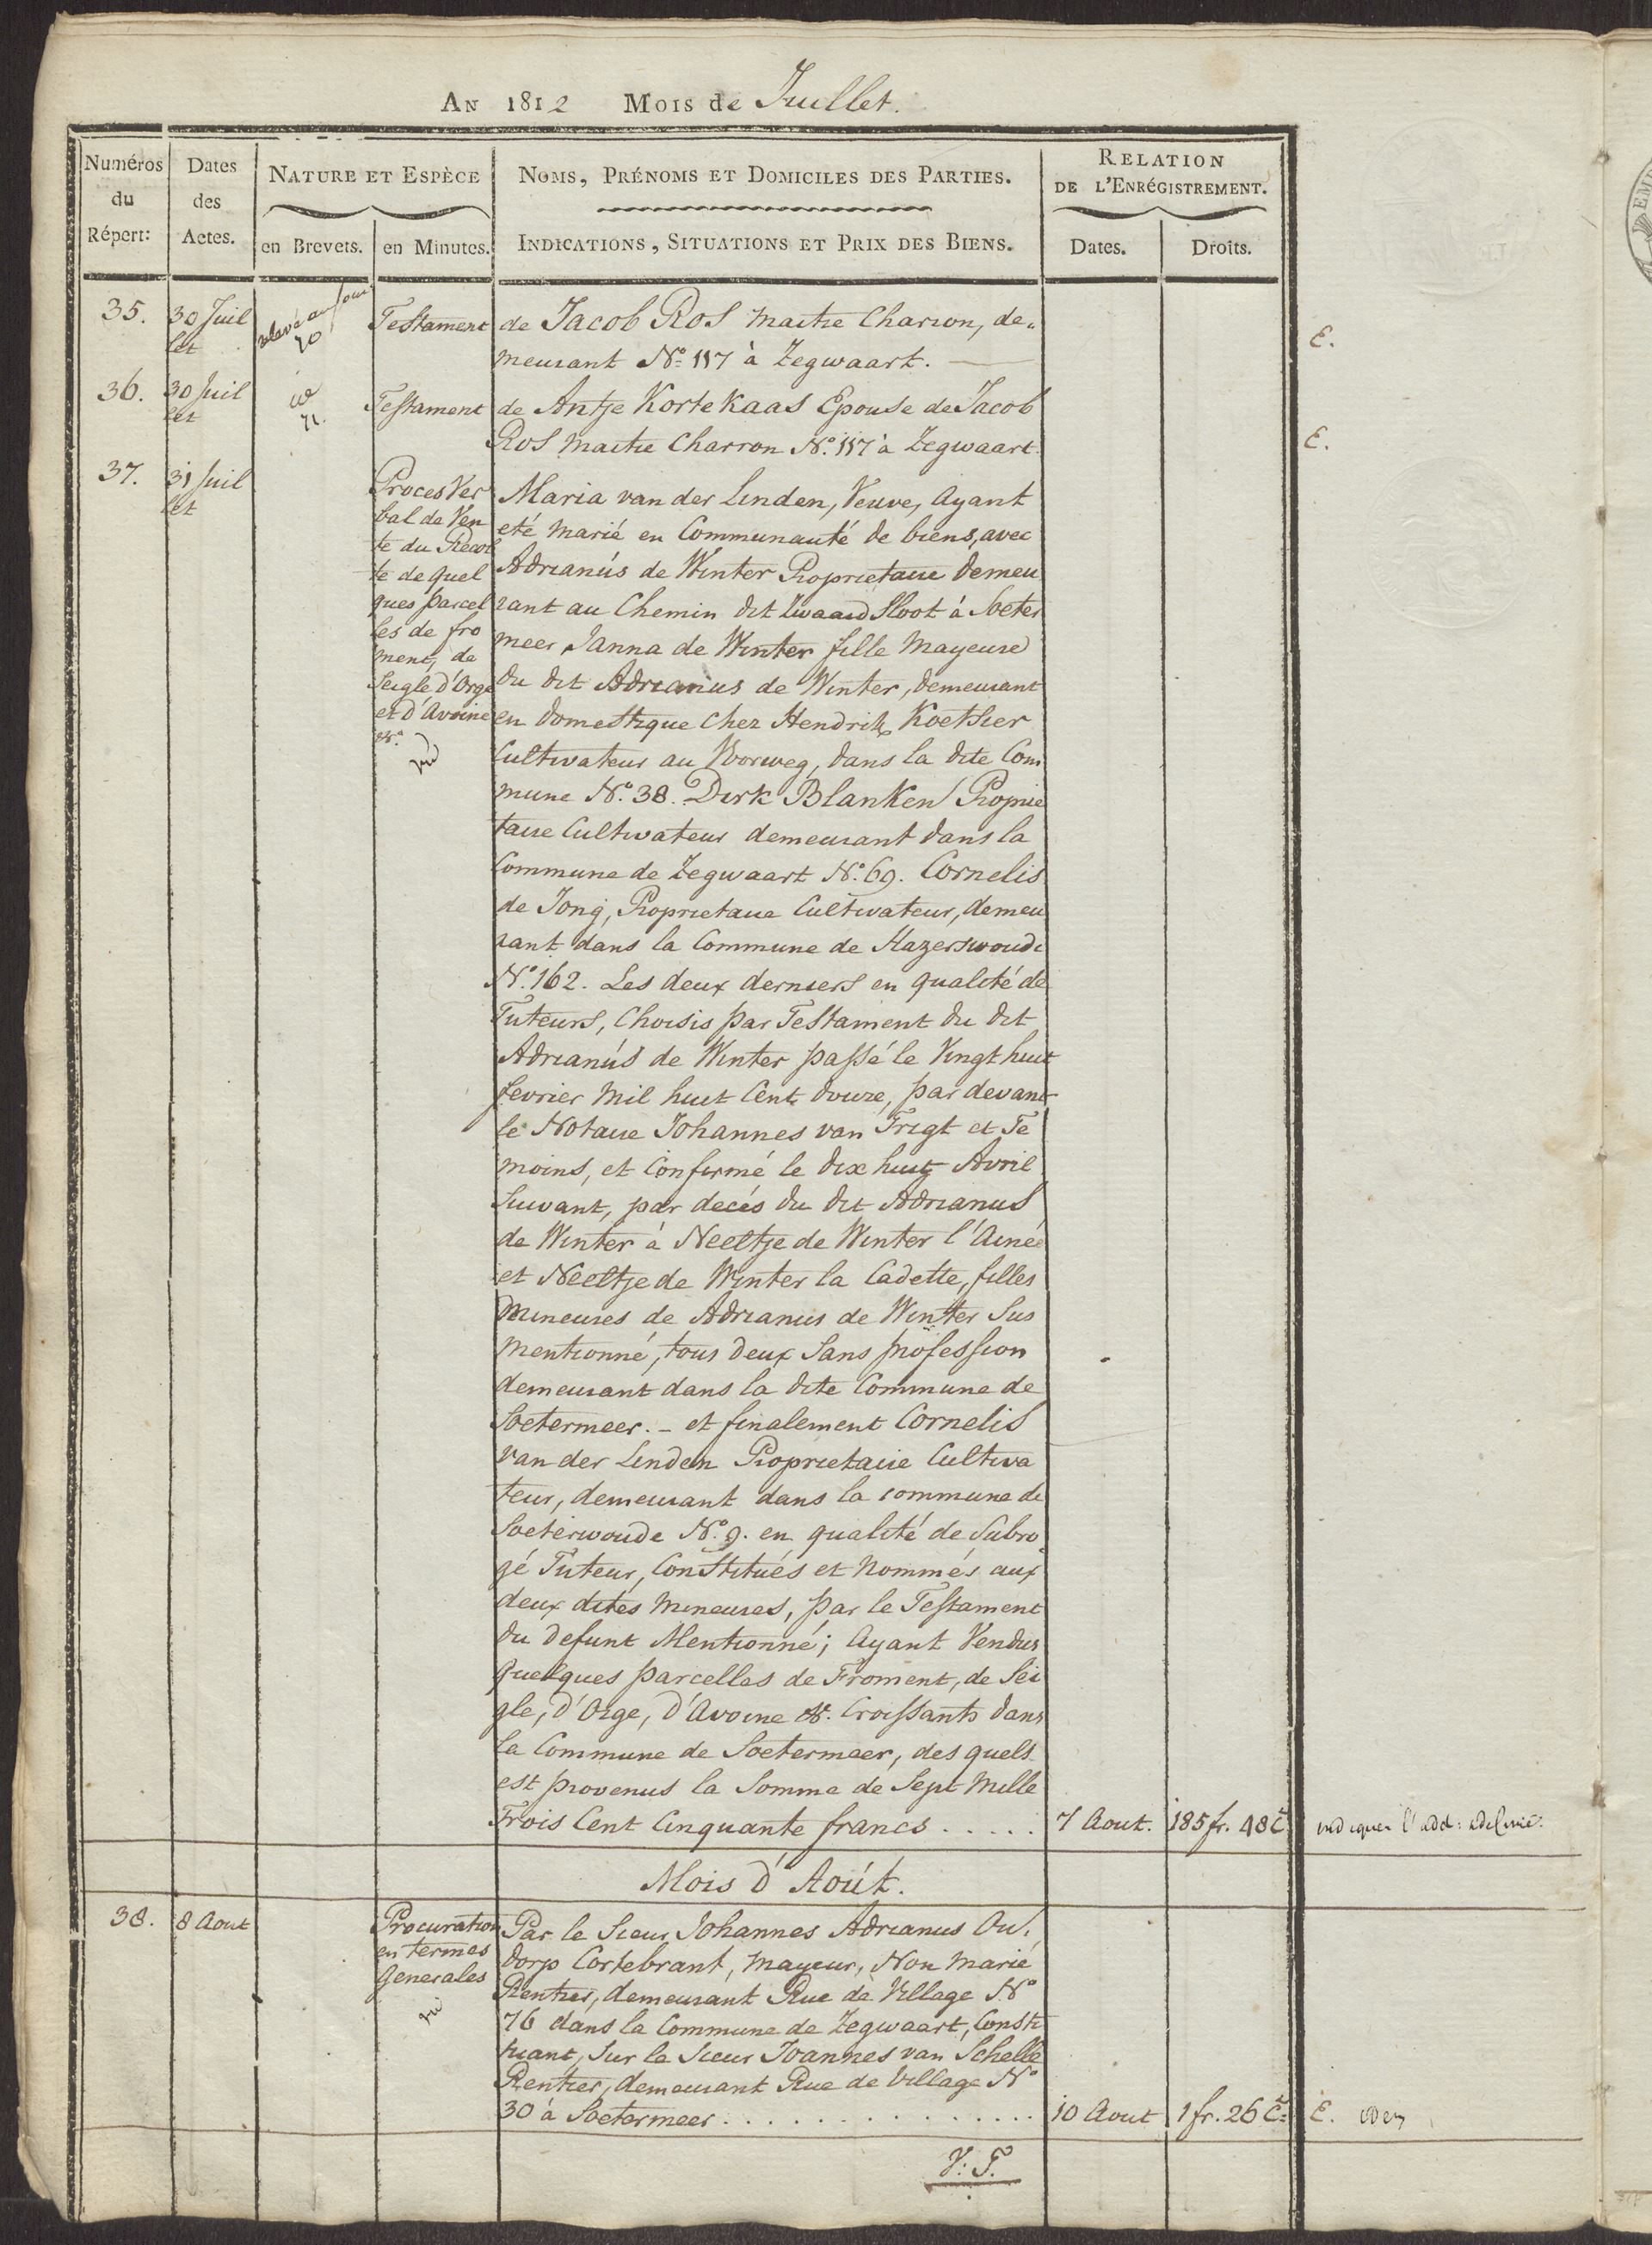 An 1812 Mois de Juillet.
Numéros du Répert:
Dates des Actes.
Nature et Espèce
en Brevets.
en Minutes.
Noms, Prénoms et Domiciles des Parties.
Indications, Situations et Prix des Biens.
Relation de l'Enrégistrement.
Dates.
Droits.
35.
30 Juil
let
70
Testament
de Jacob Ros Maitre Charron, de„
meurant No. 117 à Zegwaart.
E.
36.
30 Juil
let
71.
Testament
de Antje Kortekaas Epouse de Jacob
Ros Maitre Charron No. 117 à Zegwaart.
E.
37.
31 Juil
let
Proces Ver
bal de Ven
te du Recol
te de quel
ques parcel
les de fro
ment, de
Seigle d'Orge
et d'Avoine
&a.
Maria van der Linden, Veuve, Ayant
eté Marié en Communauté de biens, avec
Adrianús de Winter Proprietaire demeu
rant au Chemin dit Zwaard Sloot à Soeter
meer, Janna de Winter fille Mayeure
du dit Adrianus de Winter, demeurant
en domestique Chez Hendrik Koetsier
Cultivateur au Voorweg, dans la dite Com
mune No. 38. Dirk Blanken Proprie
taire Cultivateur demeurant dans la
Commune de Zegwaart No. 69. Cornelis
de Jong, Proprietaire Cultivateur, demeu
rant dans la Commune de Hazerswoude
No. 162. Les deux derniers en qualité de
Tuteurs, Choisis par Testament du dit
Adrianús de Winter passé le Vingt huit
fevrier Mil huit Cent douze, par devant
le Notaire Johannes van Trigt et Te
moins, et Confirmé le dix huit Avril
Suivant, par decès du dit Adrianus
de Winter à Neeltje de Winter l'Ainée
et Neeltje de Winter la Cadette, filles
Mineures de Adrianus de Winter Sus
Mentionné, tous deux Sans profession
demeurant dans la dite Commune de
Soetermeer. – et finalement Cornelis
van der Linden Proprietaire Cultiva
teur, demeurant dans la commune de
Soeterwoude No. 9. en qualité de Subro
gé Tuteur, Constitués et Nommés aux
deux dites Mineures, par le Testament
du defunt Mentionné; Ayant Vendus
quelques parcelles de Froment, de Sei
gle, d'Orge, d'Avoine &a. Croissants dans
la Commune de Soetermeer, des quels
est provenus la Somme de Sept Mille
Trois Cent Cinquante francs . . . . .
7 Aout.
185 fr. 48 Ct.
indiquer l'add:
Mois d'Août.
38.
8 Aout
Procuration
en termes
Generales
Par le Sieur Johannes Adrianus Ou.
dorp Cortebrant, Mayeur, Non Marié
Rentier, demeurant Rue de Village No
76 dans la Commune de Zegwaart, Consti
tuant, Sur le Sieur Joannes van Schelle
Rentier, demeurant Rue de Village No
30 à Soetermeer . . . . . . . . . . . . . . .
10 Aout
1 fr. 26 Ct:
E. idem
V: T.